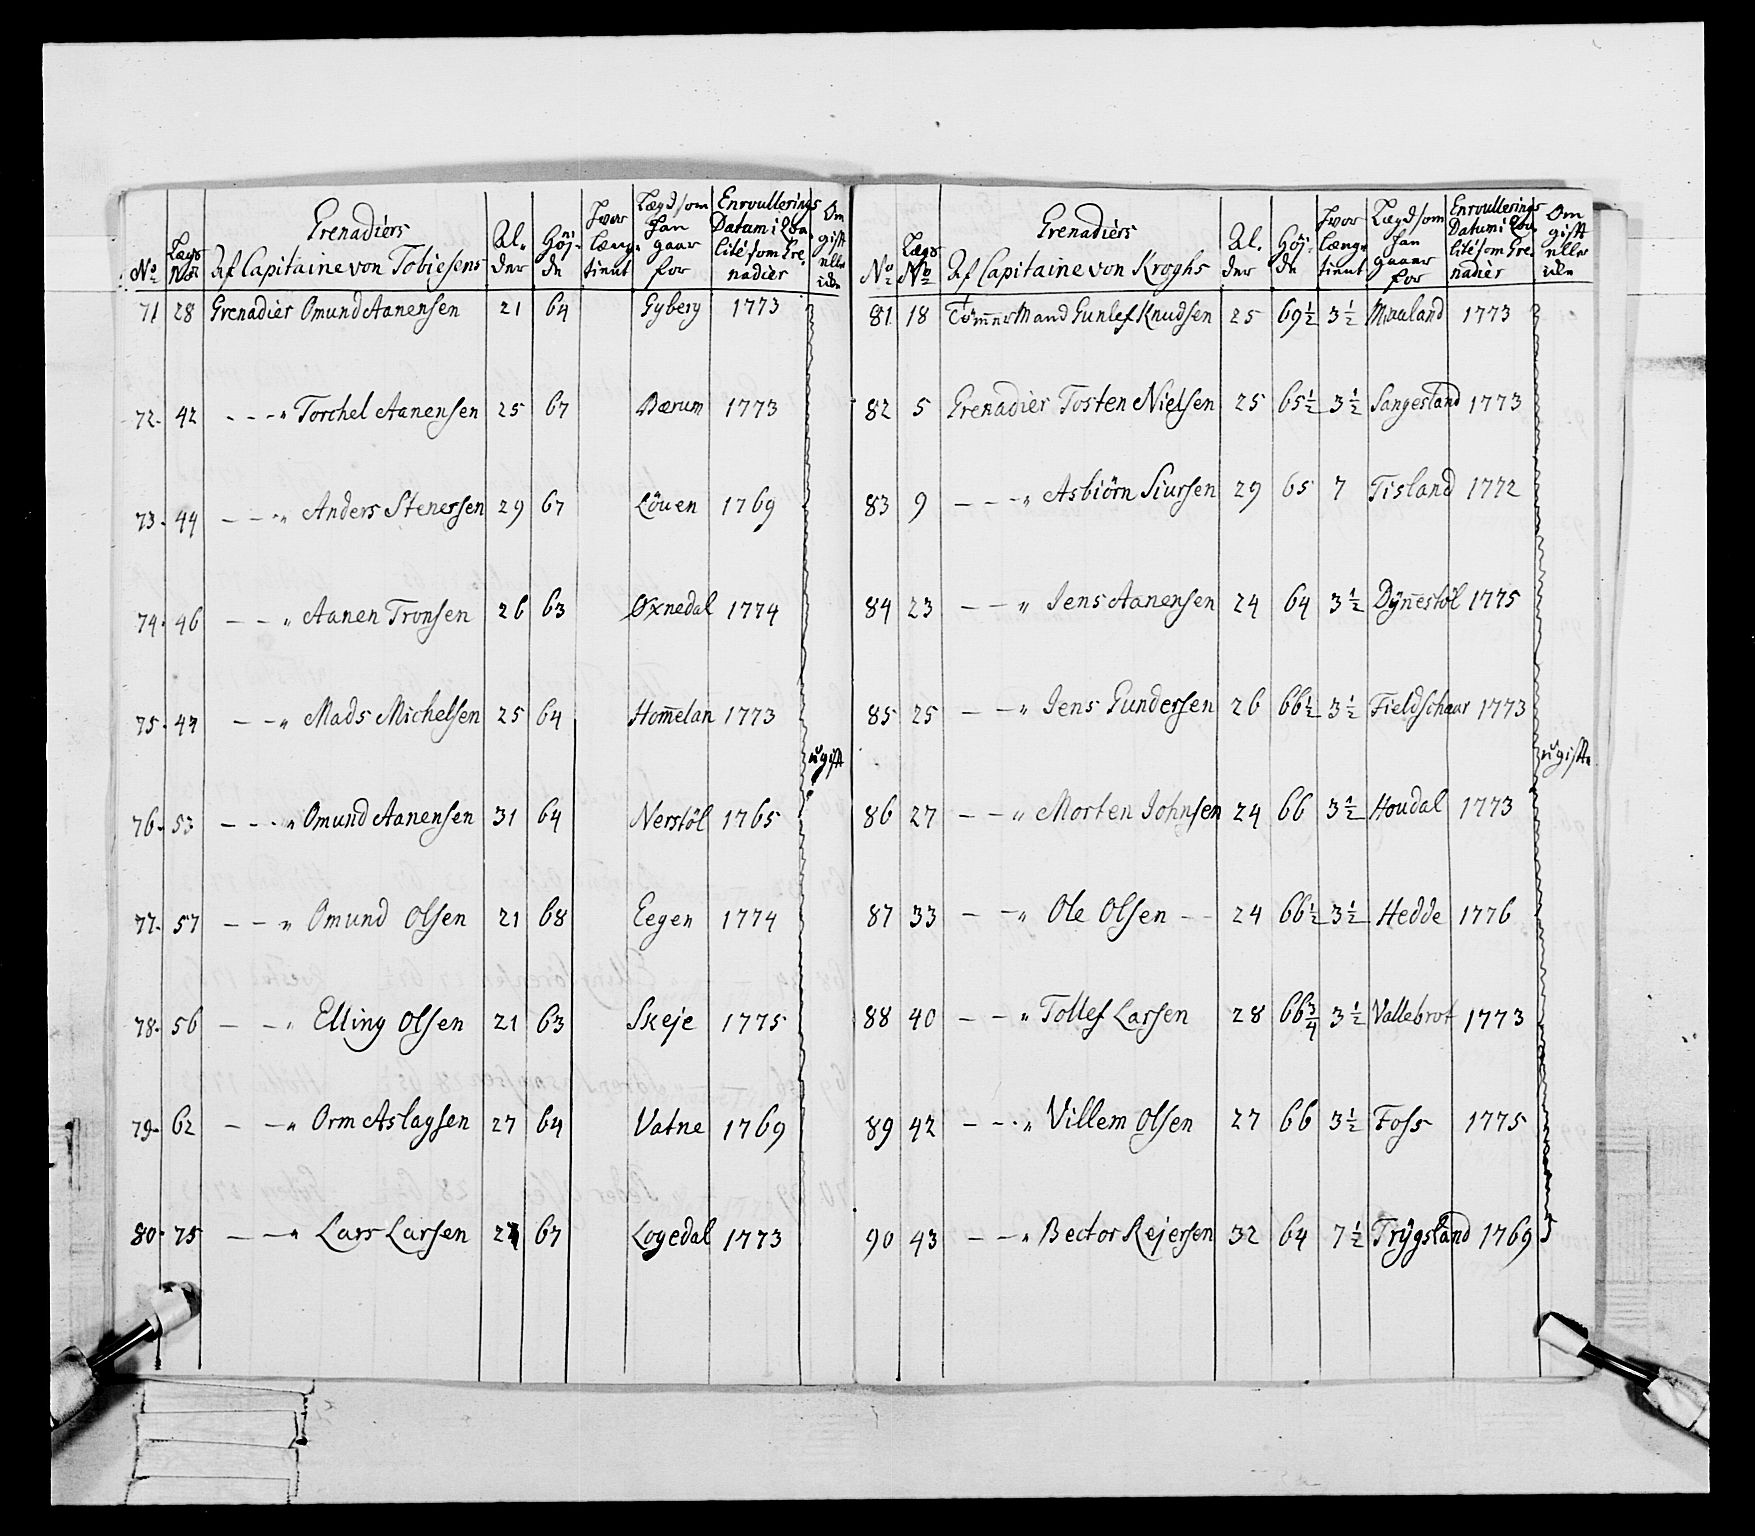 Grenadiers
No Lægs No Af Capitaine von Tobiesens Al- der Höj- de Hvor længe tient Lægd som Han gaar for Enroullerings Datum i Qualité som Grenadier Om gift eller ide
71 28 Grenadier Omund Aanensen 21 64 Gyberg 1773
72 42 - - - " Torchel Aanensen 25 67 Bærum 1773
73 44 - - - " Anders Stenersen 29 67 Löuen 1769
74 46 - - " Aanen Tronsen 26 63 Oxnedal 1774
75 47 - - " Mads Michelsen 25 64 Hom̄elan 1773
ugift
76 53 - - - " Omund Aanensen 31 64 Nerstöl 1765
77 57 - - " Omund Olsen 21 68 Eegen 1774
78 56 - - " Elling Olsen 21 63 Skeje 1775
79 62 - - " Orm Aslagsen 27 64 Vatne 1769
80 75 - - " Lars Larsen 67 Logedal 1773
Grenadiers
No Lægs No Af Capitaine von Kroghs Al- der Höj- de Hvor længe tient Lægd som Han gaaer for Enroullerings Datum i Qualité som Grenadier Om gift eller ide
81 18 Töm̄erMand Gunlef Knudsen 25 69½ 3½ Mauland 1773
82 5 Grenadier Tosten Nielsen 25 65½ 3½ Sangesland 1773
83 9 - - - " Asbiörn Siursen 29 65 7 Tisland 1772
84 23 - - " Jens Aanensen 24 64 3½ Dÿnestöl 1775
85 25 - - " Jens Gundersen 26 66½ 3½ Fieldschaar 1773
ugifte
86 27 - - " Morten Johnsen 24 66 3½ Houdal 1773
87 33 - - " Ole Olsen - - 24 66½ 3½ Hedde 1776
88 40 - - " Tollef Larsen 28 66¾ 3½ Vallebrot 1773
89 42 - - - " Villem Olsen 27 66 3½ Foss 1775
90 43 - - " Bector Rejersen 32 64 7½ Trÿgsland 1769